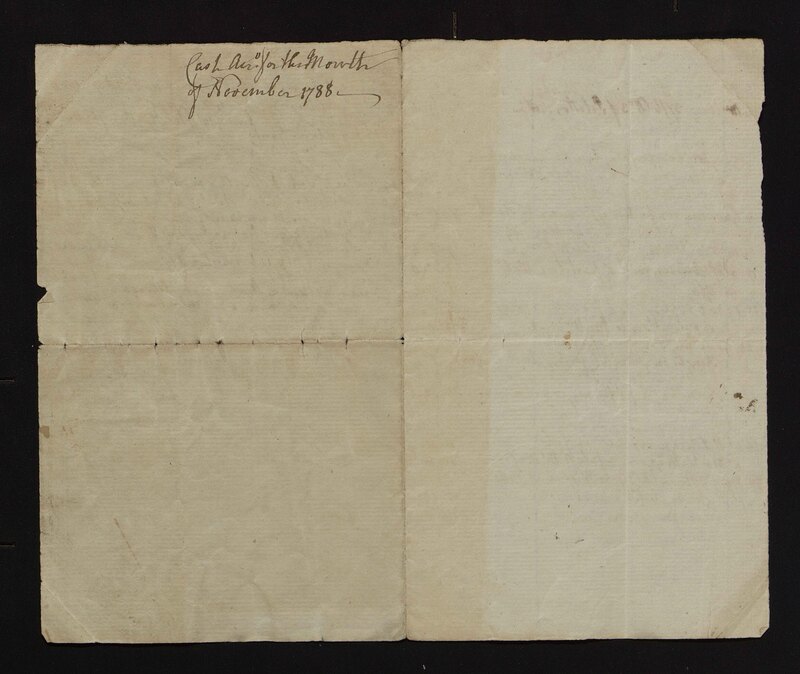 Cash Acc.o for the Month
of November 1788